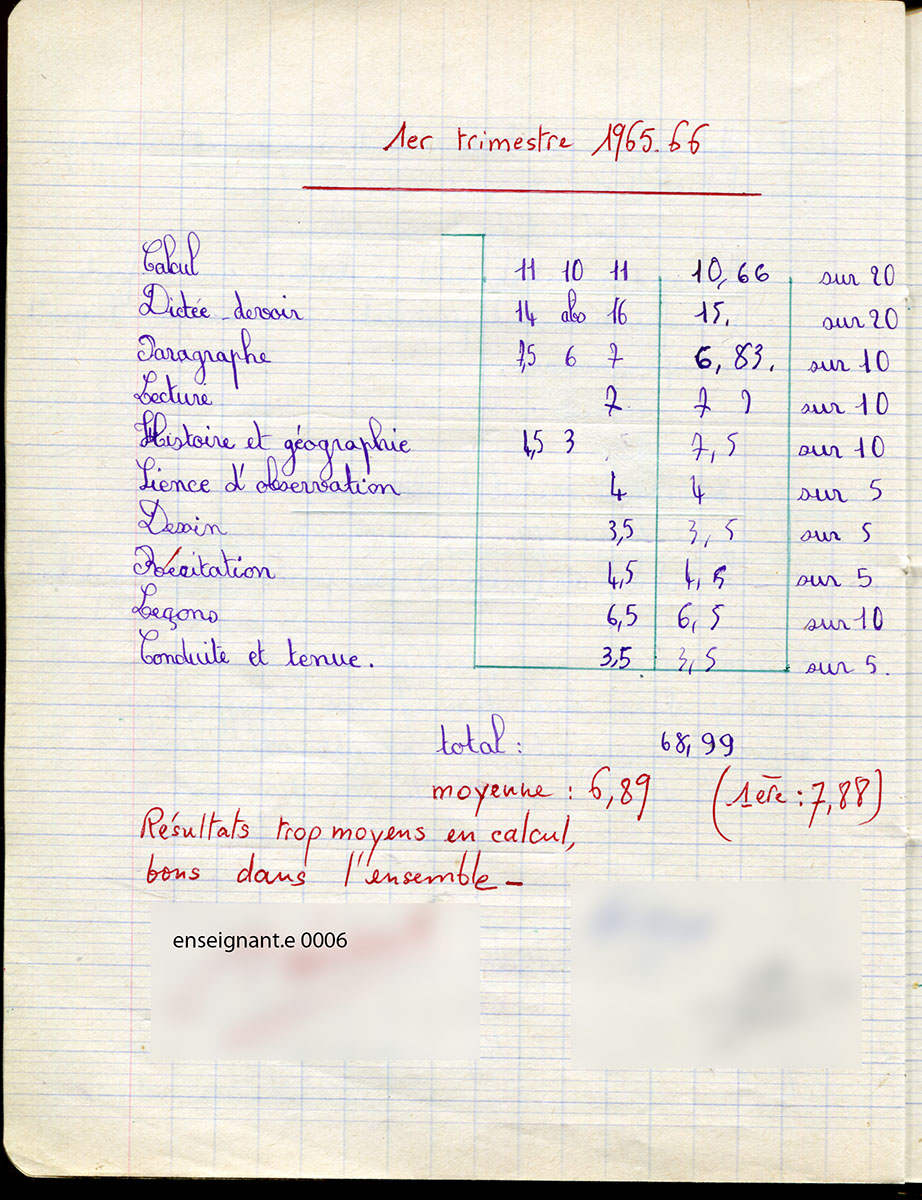 1er trimestre 1965.66
Calcul 11 10 11 10,66 sur 20
Dictée-devoir 14 abs 16 15. sur 20
Paragraphe 7,5 6 7 6,83. sur 10
Lecture 7 7 sur 10
Histoire et géographie 4,5 3 7,5 sur 10
Sience d'observation 4 4 sur 5
Dessin 3,5 3,5 sur 5
Récitation 4,5 4,5 sur 5
Leçons 6,5 6,5 sur 10
Conduite et tenue. 3,5 3,5 sur 5.
total : 68,99
moyenne : 6,89 (1ère : 7,88)
Résultats trop moyens en calcul,
bons dans l'ensemble -
enseignant.e 0006